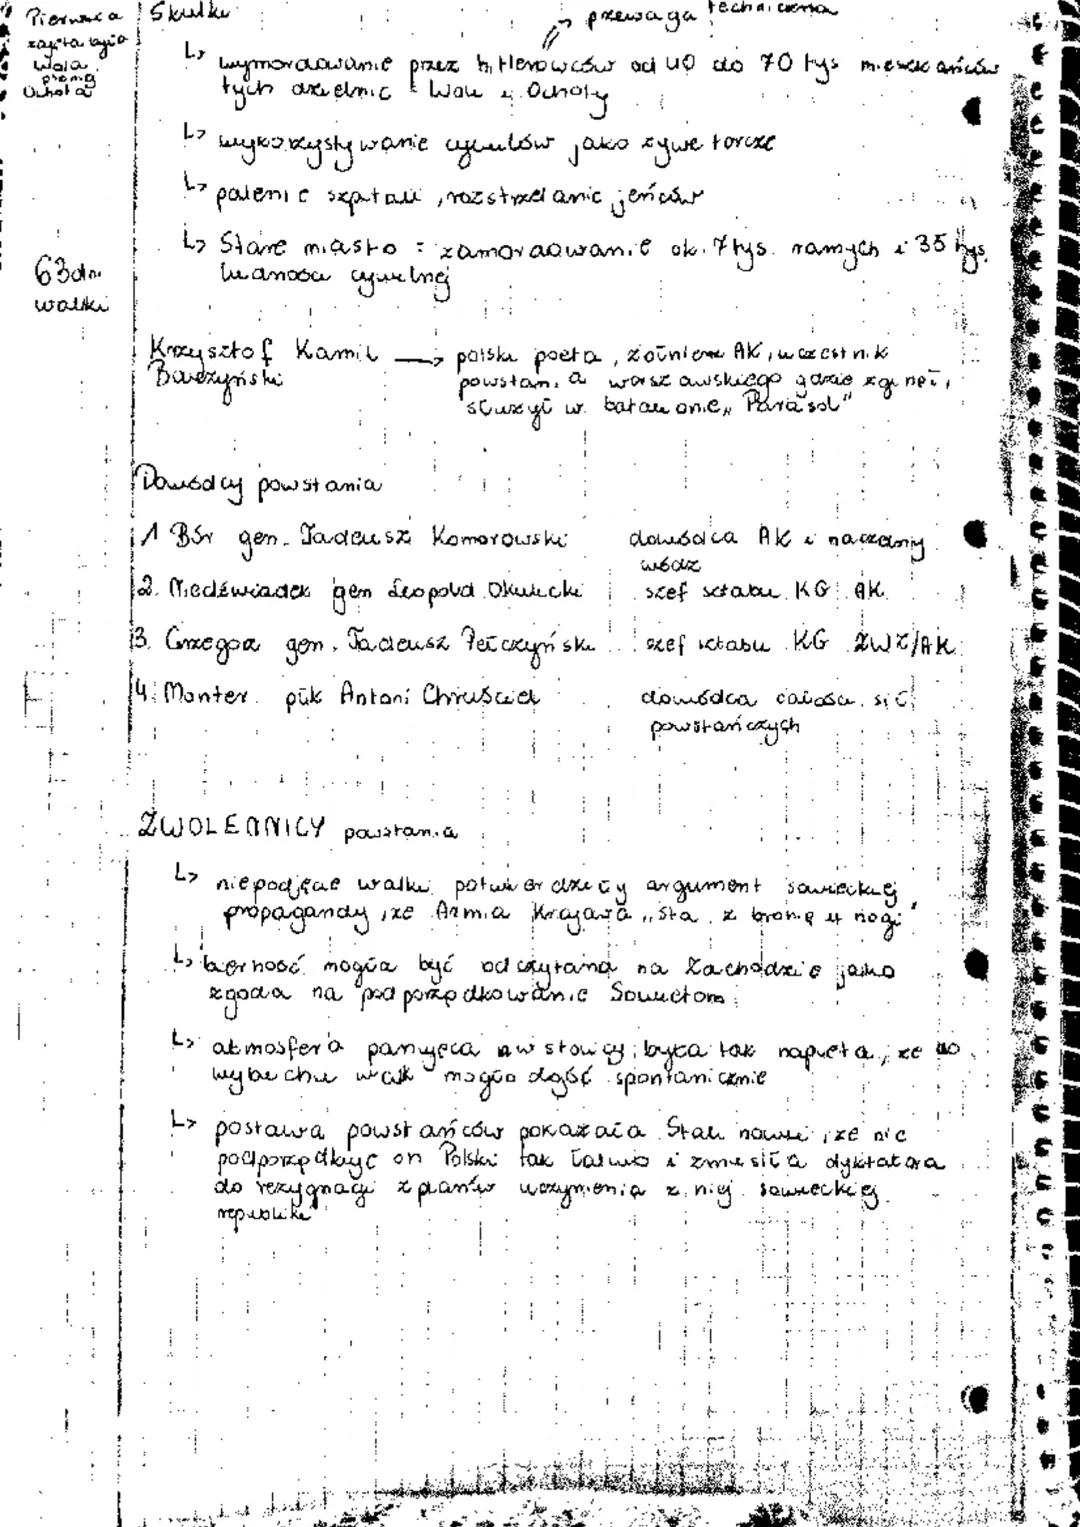 Pierwsza
zajęta była
Wola,
potem
Ochota
63 dni
walki
Skutki
przewaga techniczna
↳ wymordowanie przez hitlerowców od 40 do 70 tys mieszkańców
tych dzielnic Woli i Ochoty
↳ wykorzystywanie cywilów jako żywe tarcze
↳ palenie szpitali, rozstrzelanie jeńców
↳ Stare miasto = zamordowanie ok. 7 tys. rannych i 35 tys.
ludności cywilnej
Krzysztof Kamil → polski poeta, żołnierz AK, uczestnik
Baczyński powstania warszawskiego gdzie zginął,
służył w batalionie „Parasol"
Dowódcy powstania
1 Bór gen. Tadeusz Komorowski dowódca AK i naczelny
wódz
2. Niedźwiadek gen Leopold Okulicki szef sztabu KG AK
3. Grzegorz gen. Tadeusz Pełczyński szef sztabu KG ZWZ/AK
4. Monter płk Antoni Chruściel dowódca całości sił
powstańczych
ZWOLENNICY powstania
↳ niepodjęcie walki potwierdziłby argument sowieckiej
propagandy, że Armia Krajowa „stał z bronią u nogi"
↳ bierność mogła być odczytana na Zachodzie jako
zgoda na podporządkowanie Sowietom
↳ atmosfera panująca w stolicy była tak napięta, że do
wybuchu walk mogło dojść spontanicznie
↳ postawa powstańców pokazała Stalinowi, że nie
podporządkuje on Polski tak łatwo i zmusiła dyktatora
do rezygnacji z planów uczynienia z niej sowieckiej
republiki